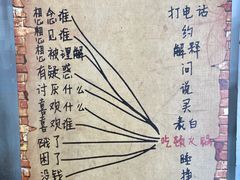 想念谁
想见谁
想被理解
有疑惑
讨厌什么
喜欢什么
喜欢谁
饿了
困了
没钱
打电话
约
解释
问
说
买
表白
吃顿火锅
睡
挣